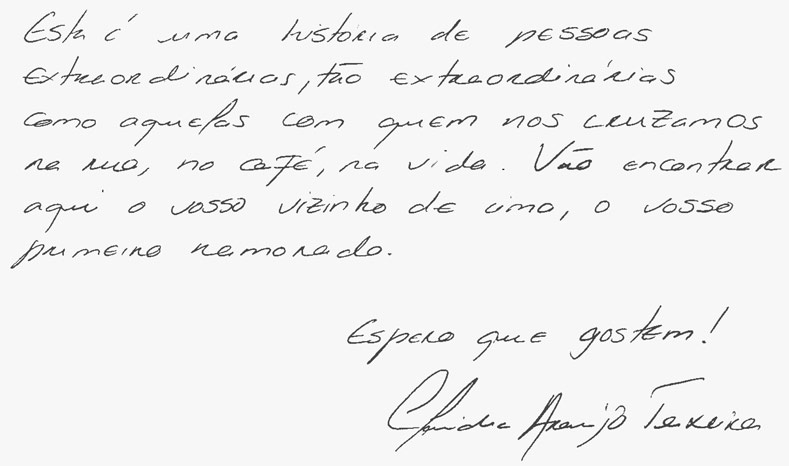 Esta é uma história de pessoas
extraordinárias, tão extraordinárias
como aquelas com quem nos cruzamos
na rua, no café, na vida. Vão encontrar
aqui o vosso vizinho de cima, o vosso
primeiro namorado.
Espero que gostem!
Cláudia Araújo Teixeira